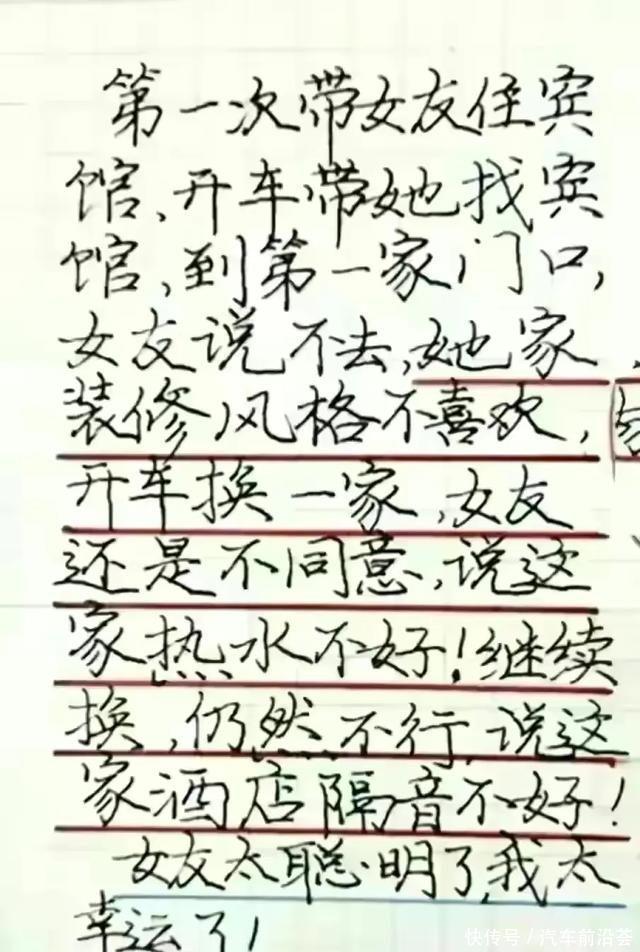 第一次带女友住宾
馆、开车带她找宾
馆,到第一家门口,
女友说不去,她家
装修风格不喜欢,
开车换一家,女友
还是不同意,说这
家热水不好!继续
换,仍然不行,说这
家酒店隔音不好!
女友太聪明了,我太
幸运了!
快传号/汽车前沿荟